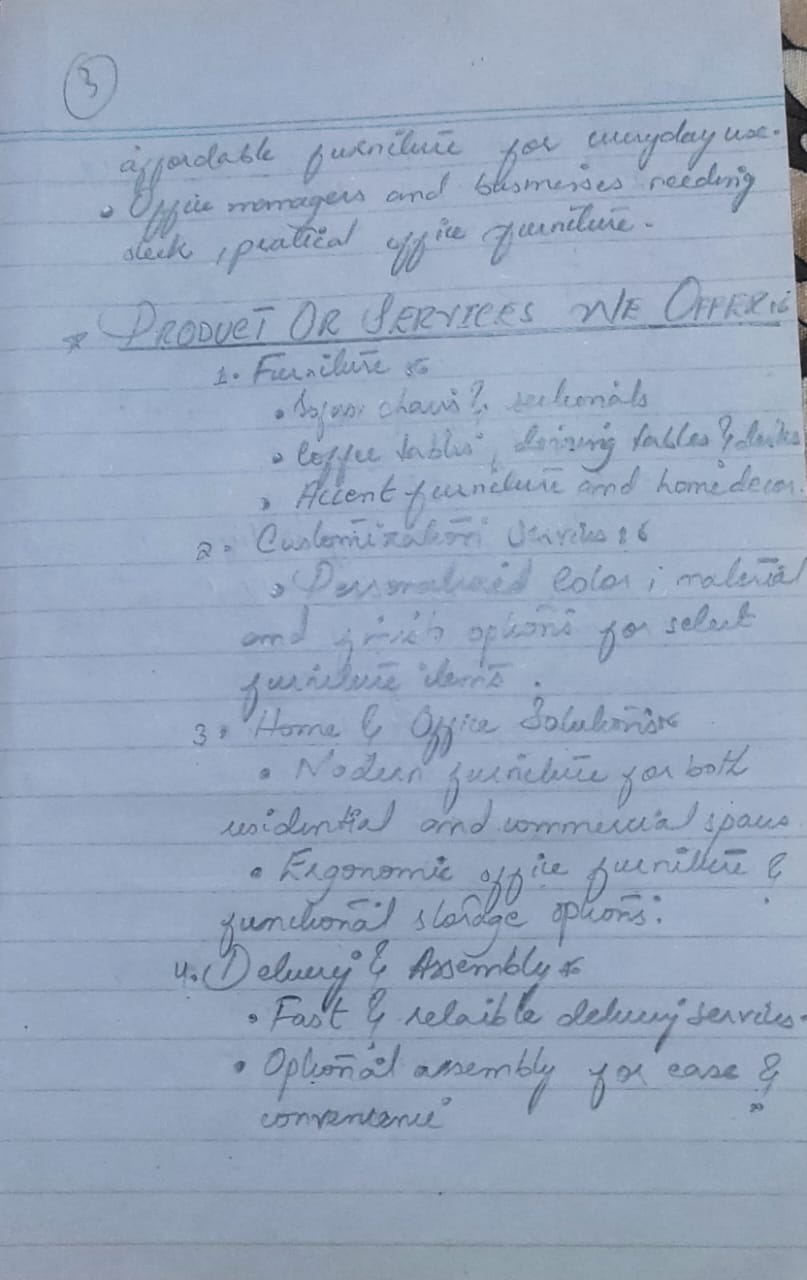 3
affordable furniture for everyday use.
• Office managers and businesses needing
sleek, pratical office furniture.
* PRODUCT OR SERVICES WE OFFER:
1. Furniture :
• Sofas, chairs & sectionals
• Coffee tables, dining tables & desks
• Accent furniture and home decor.
2. Customization Services :
• Personalized Color, material
and finish options for select
furniture items.
3. Home & Office Solutions:
• Modern furniture for both
residential and commercial spaces
• Ergonomic office furniture &
functional storage options.
4. Delivery & Assembly :
• Fast & relaible delivery services.
• Optional assembly for ease &
convenience